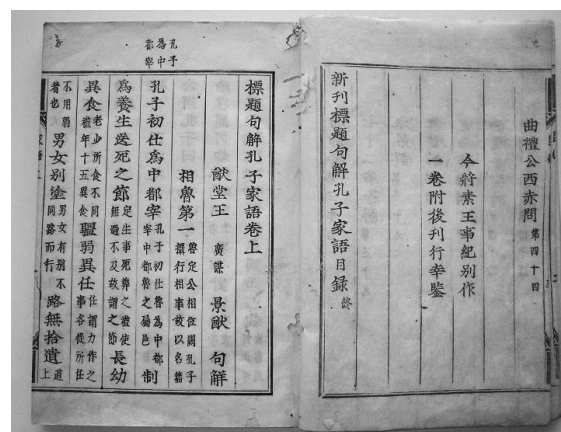 曲禮公西赤問 第四十四
今將素王事紀別作
一卷附後刊行幸鑒
新刊標題句解孔子家語目録 終
孔子
為中
都宰
標題句解孔子家語卷上
猷堂王 廣謀 景猷 句解
相魯第一 魯定公相佐閑孔子攝行相事故以名篇
孔子初仕為中都宰 孔子初仕魯為中都宰中都魯之邑 制
為養生送死之節 定生事死葬之禮使無過不及故謂之節 長幼
異食 老少所食不同禮年十五異食 彊弱異任 任謂力作之事各從所任
不用弱者也 男女別塗 男女有別不同路而行 路無拾遺 道上